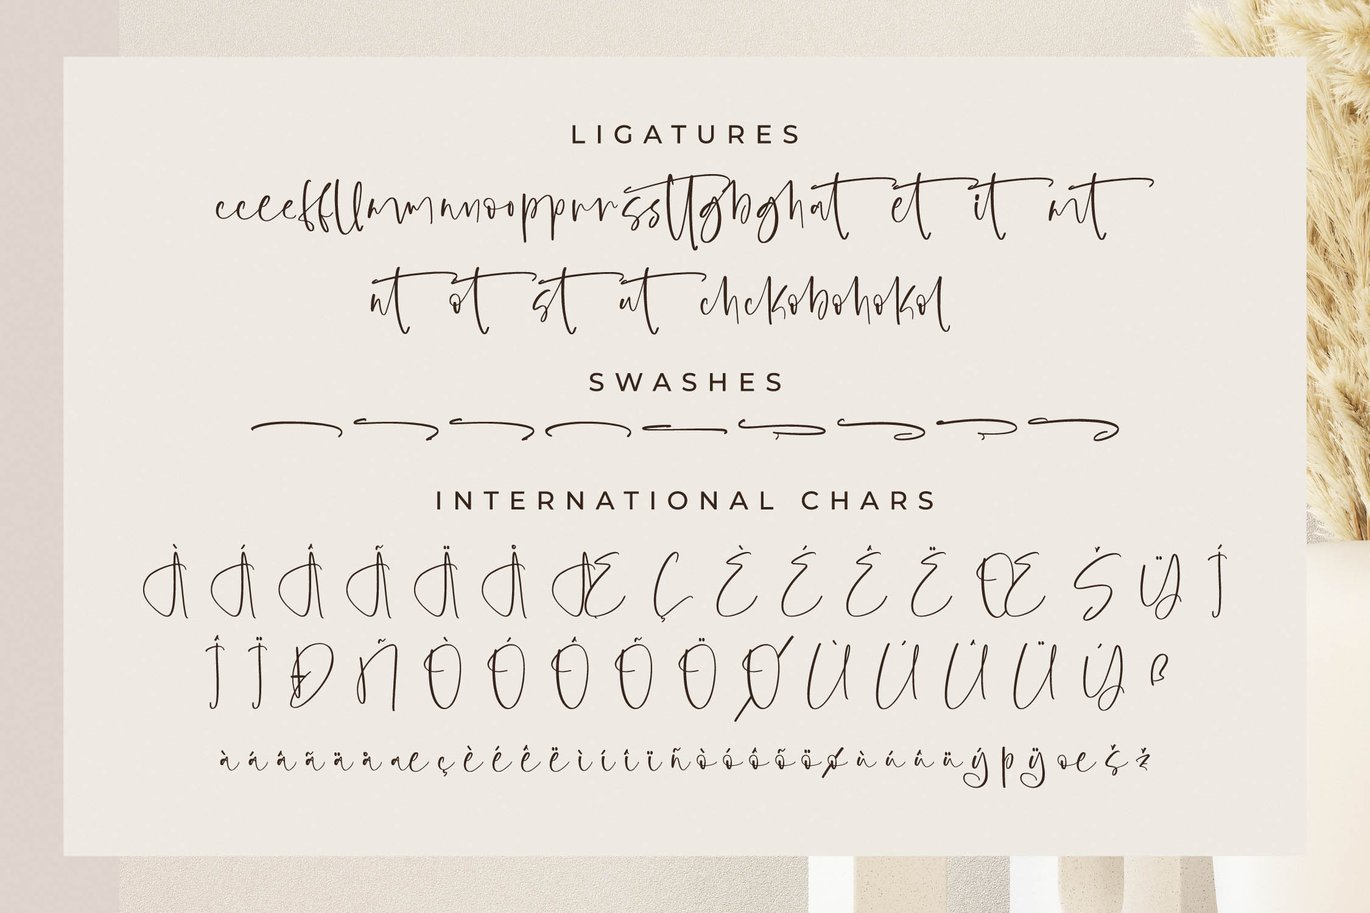 LIGATURES
cceeffllmmnnoopprrssttgbghat et it mt
nt ot st ut chckobohokol
SWASHES
INTERNATIONAL CHARS
À Á Â Ã Ä Å Æ Ç È É Ê Ë Œ Š Ÿ Í
Î Ï Ð Ñ Ò Ó Ô Õ Ö Ø Ù Ú Û Ü Ý ß
à á â ã ä å æ ç è é ê ë ì í î ï ñ ò ó ô õ ö ø ù ú û ü ý þ ÿ œ š ž